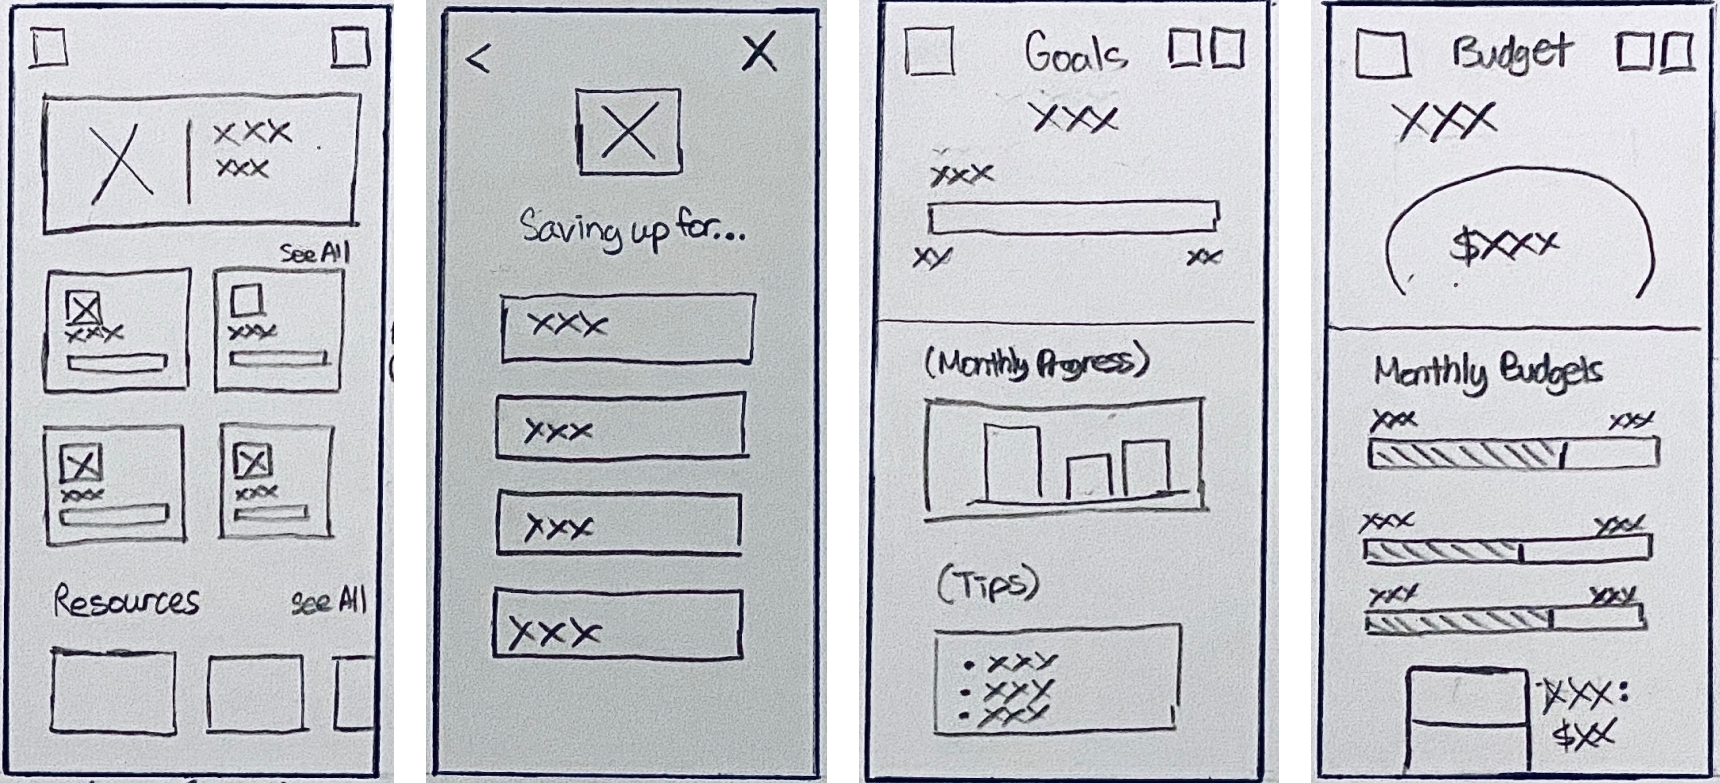 XXX
XXX
See All
XXX
XXX
XXX
XXX
Resources
See All
<
X
Saving up for...
XXX
XXX
XXX
XXX
Goals
XXX
XXX
XX XX
(Monthly Progress)
(Tips)
• XXX
• XXX
• XXX
Budget
XXX
$XXX
Monthly Budgets
XXX XXX
XXX XXX
XXX XXX
XXX:
$XX